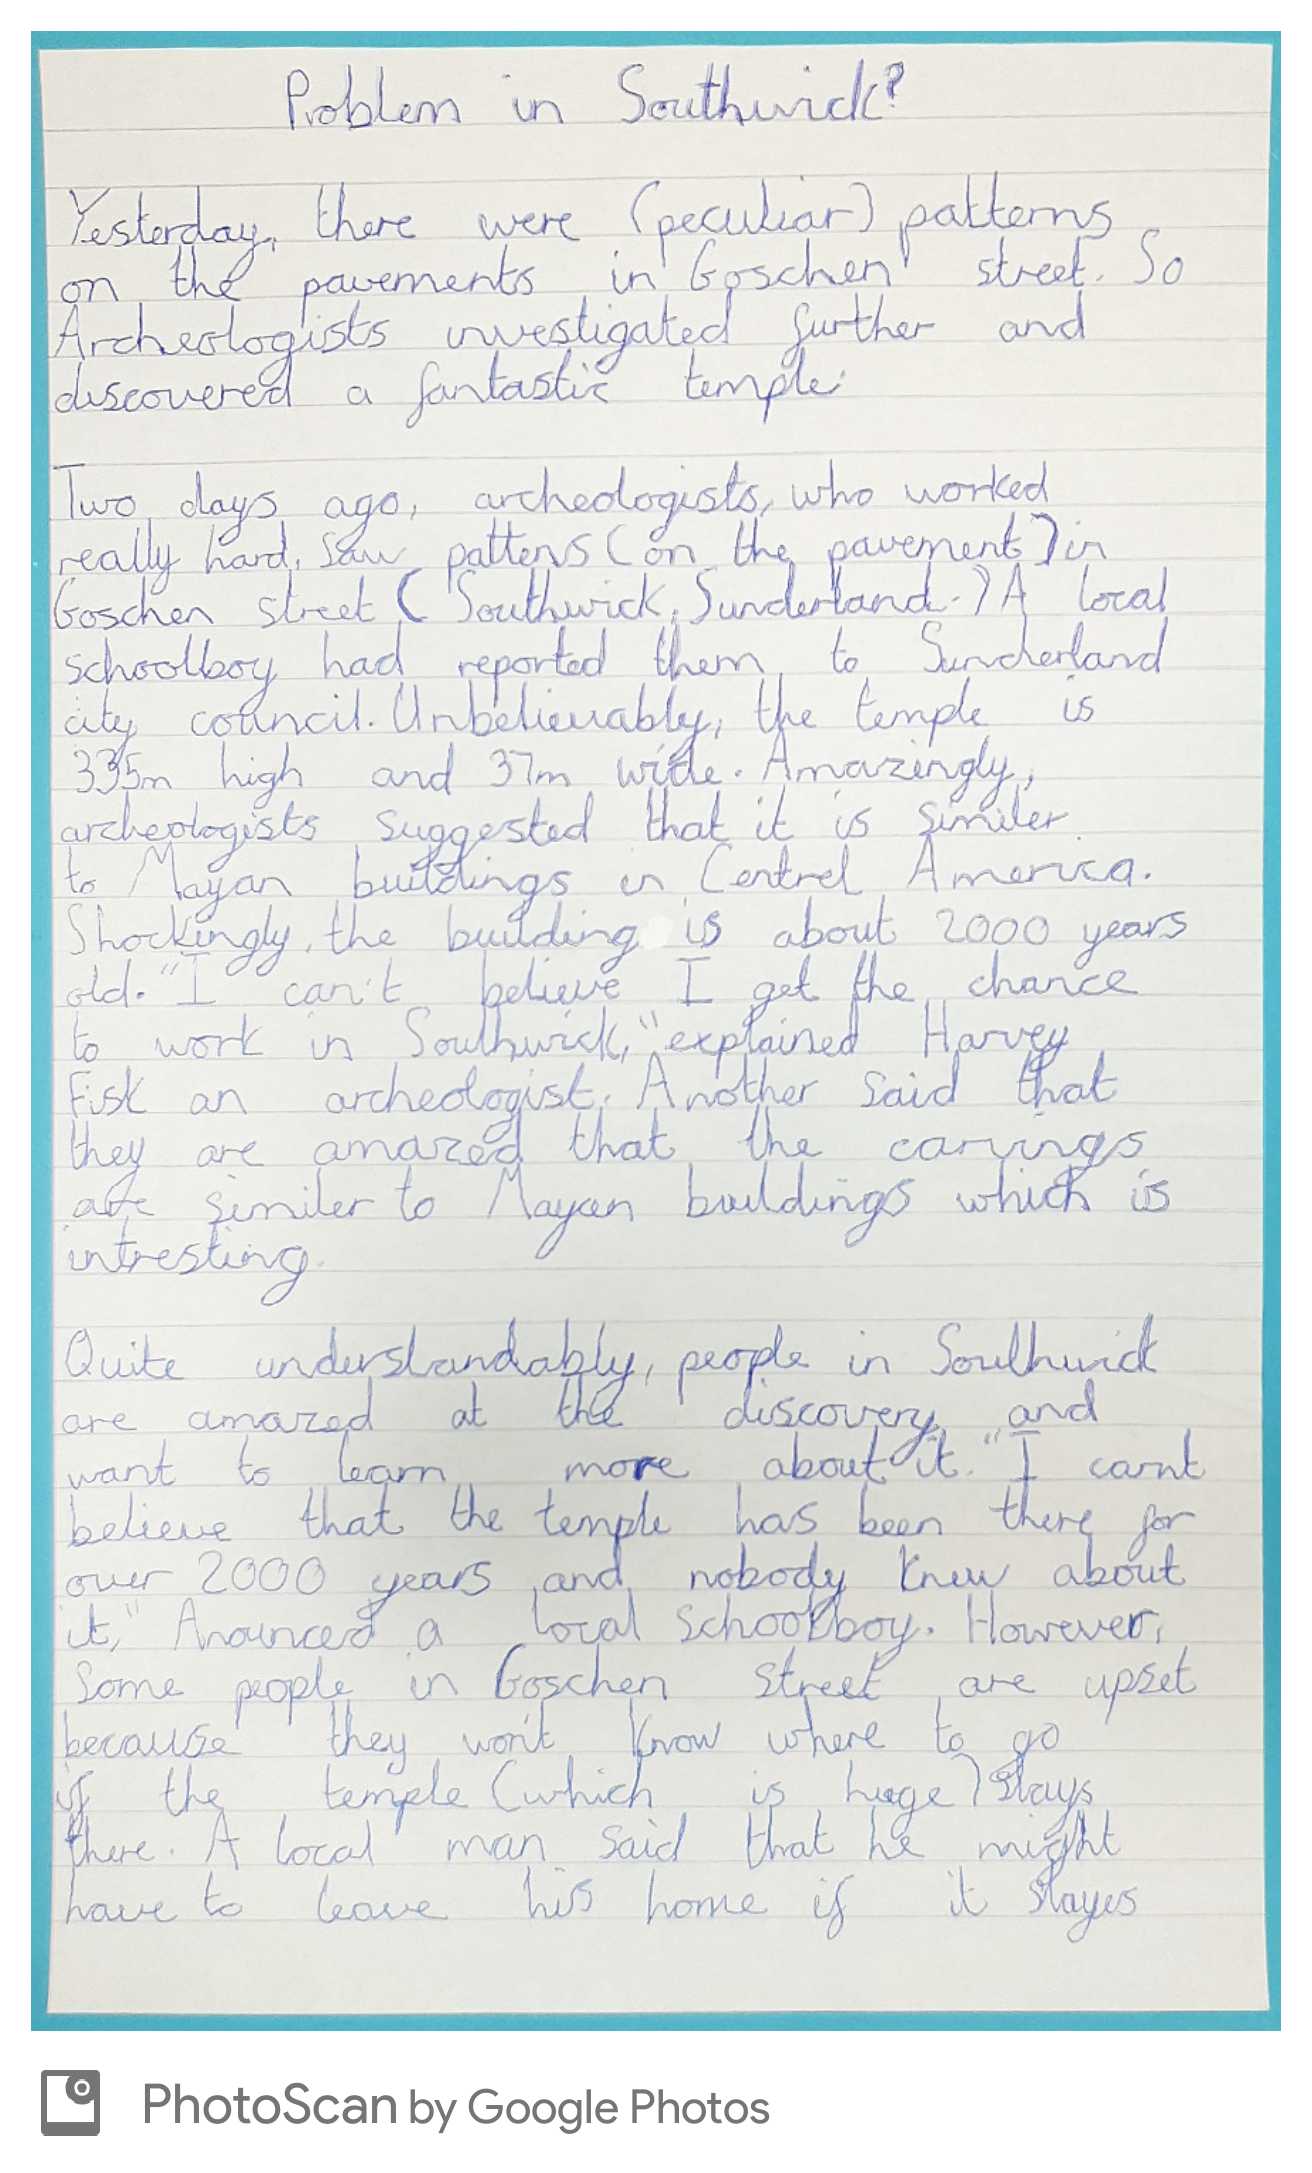 Problem in Southwick?
Yesterday, there were (peculiar) patterns
on the pavements in Goschen street. So
Archeologists investigated further and
discovered a fantastic temple.
Two days ago, archeologists, who worked
really hard, saw pattens (on the pavement) in
Goschen street (Southwick, Sunderland.) A local
schoolboy had reported them to Sunderland
city council. Unbelievably, the temple is
335m high and 37m wide. Amazingly,
archeologists suggested that it is similer
to Mayan buildings in Centrel America.
Shockingly, the building is about 2000 years
old. "I can't believe I get the chance
to work in Southwick," explained Harvey
Fisk an archeologist. Another said that
they are amazed that the carvings
are similer to Mayan buildings which is
intresting.
Quite understandably, people in Southwick
are amazed at the discovery and
want to learn more about it. "I carnt
believe that the temple has been there for
over 2000 years and nobody knew about
it," Anounced a local schoolboy. However,
some people in Goschen street are upset
because they won't know where to go
if the temple (which is huge) stays
there. A local man said that he might
have to leave his home if it stayes
PhotoScan by Google Photos